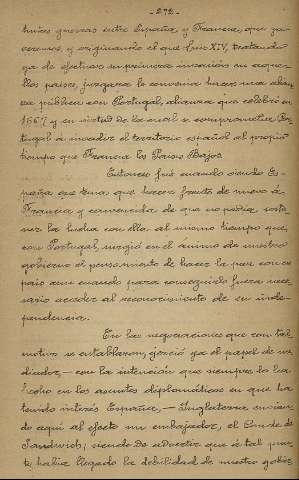 -292-
nuias guerras entre España y Francia, que ya
veremos, y originando el que Luis XIV, tratando
ya de efectuar su primera invasión en aque-
llos países, juzgara le convenía hacer una alian-
za pública con Portugal, alianza que celebró en
1667 y en virtud de la cual se comprometía Por-
tugal a invadir el territorio español al propio
tiempo que Francia los Paises Bajos.
Entonces fué cuando viendo Es-
paña que tenia que hacer frente de nuevo á
Francia y convencida de que no podría soste-
ner la lucha con ella al mismo tiempo que
con Portugal, surgió en el animo de nuestro
gobierno el pensamiento de hacer la paz con ese
pais aun cuando para conseguirlo fuera nece-
sario acceder al reconocimiento de su inde-
pendencia.
En las negociaciones que con tal
motivo se entablaron, ejerció ya el papel de me-
diador — con la intención que siempre lo ha
hecho en los asuntos diplomáticos en que ha
tenido interés España, — Inglaterra envian-
do aqui al efecto un embajador, el Conde de
Sandwich; siendo de advertir que á tal pun-
to habia llegado la debilidad de nuestro gobier